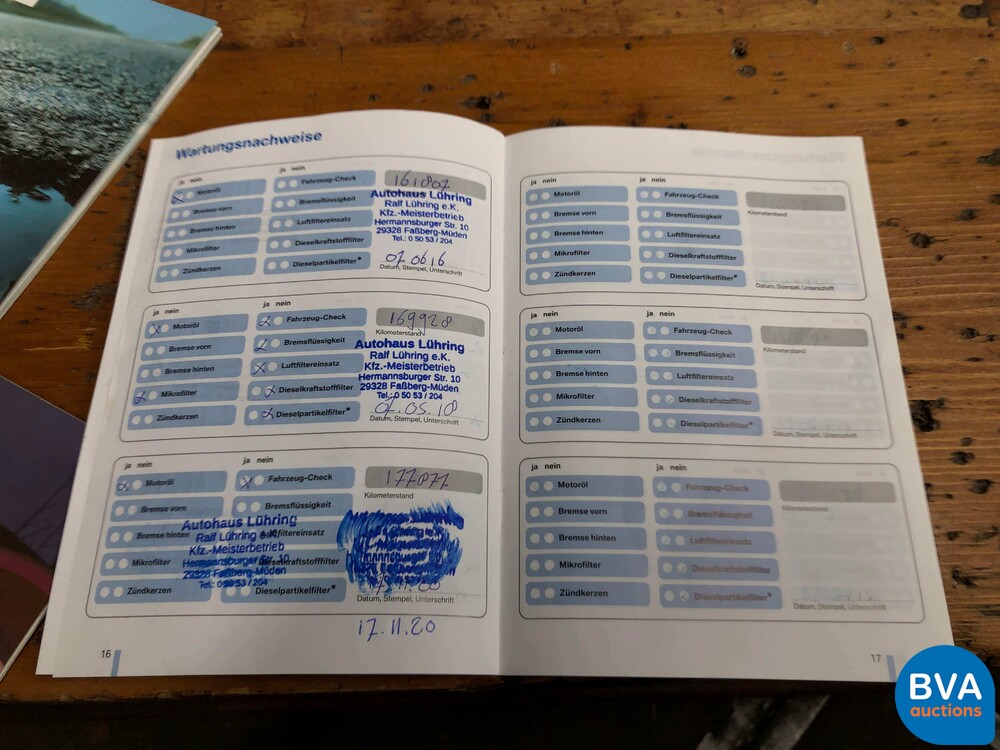 Wartungsnachweise
ja nein
Motoröl
Bremse vorn
Bremse hinten
Mikrofilter
Zündkerzen
ja nein
Fahrzeug-Check
Bremsflüssigkeit
Luftfiltereinsatz
Dieselkraftstofffilter
Dieselpartikelfilter*
161807
Autohaus Lühring
Ralf Lühring e.K.
Kfz.-Meisterbetrieb
Hermannsburger Str. 10
29328 Faßberg-Müden
Tel.: 0 50 53 / 204
07.06 16
Datum, Stempel, Unterschrift
ja nein
Motoröl
Bremse vorn
Bremse hinten
Mikrofilter
Zündkerzen
ja nein
Fahrzeug-Check
Bremsflüssigkeit
Luftfiltereinsatz
Dieselkraftstofffilter
Dieselpartikelfilter*
169928
Kilometerstand
Autohaus Lühring
Ralf Lühring e.K.
Kfz.-Meisterbetrieb
Hermannsburger Str. 10
29328 Faßberg-Müden
Tel.: 0 50 53 / 204
07.05.18
Datum, Stempel, Unterschrift
ja nein
Motoröl
Bremse vorn
Bremse hinten
Mikrofilter
Zündkerzen
ja nein
Fahrzeug-Check
Bremsflüssigkeit
Luftfiltereinsatz
Dieselkraftstofffilter
Dieselpartikelfilter*
177877
Kilometerstand
Autohaus Lühring
Ralf Lühring e.K.
Kfz.-Meisterbetrieb
Hermannsburger Str. 10
29328 Faßberg-Müden
Tel.: 0 50 53 / 204
Datum, Stempel, Unterschrift
17.11.20
16
ja nein
Motoröl
Bremse vorn
Bremse hinten
Mikrofilter
Zündkerzen
ja nein
Fahrzeug-Check
Bremsflüssigkeit
Luftfiltereinsatz
Dieselkraftstofffilter
Dieselpartikelfilter*
Kilometerstand
Datum, Stempel, Unterschrift
ja nein
Motoröl
Bremse vorn
Bremse hinten
Mikrofilter
Zündkerzen
ja nein
Fahrzeug-Check
Bremsflüssigkeit
Luftfiltereinsatz
Dieselkraftstofffilter
Dieselpartikelfilter*
Kilometerstand
Datum, Stempel, Unterschrift
ja nein
Motoröl
Bremse vorn
Bremse hinten
Mikrofilter
Zündkerzen
ja nein
Fahrzeug-Check
Bremsflüssigkeit
Luftfiltereinsatz
Dieselkraftstofffilter
Dieselpartikelfilter*
Kilometerstand
Datum, Stempel, Unterschrift
17
BVA
auctions